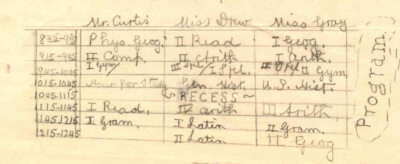 Mr. Curtis Miss Drew Miss Gray
845-915 Phys. Geog. II Read I Geog.
915-945 II Comp. II Arith Arith.
945-1015 I Gym II Gym
1015-1045 Hour for Study Gen. Hist. U.S. Hist.
1045-1115 ~RECESS~
1115-1145 I Read, IV arith III Arith,
1145-1215 I Gram. I Latin II Gram.
1215-1245 II Latin II Geog
Program